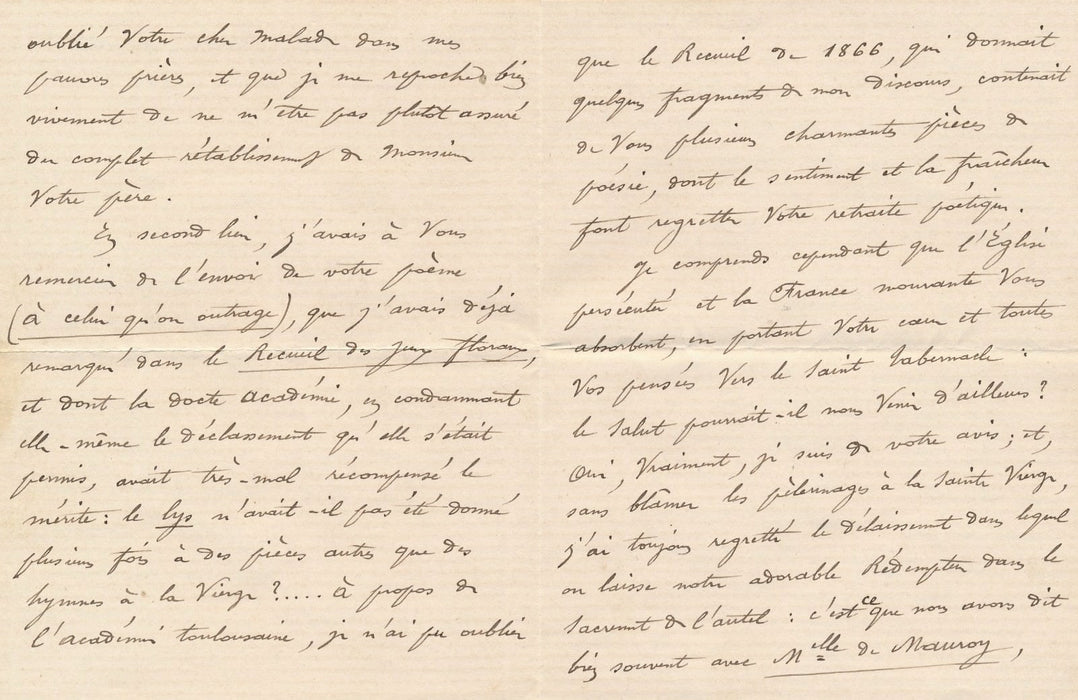 oublié Votre cher malade dans mes
pauvres prières, et que je me reproche bien
vivement de ne m'être pas plutot assuré
du complet rétablissement de Monsieur
Votre père.
En second lieu, j'avais à Vous
remercier de l'envoi de votre poème
(à celui qu'on outrage), que j'avais déjà
remarqué dans le Recueil des jeux floraux,
et dont la docte académie, en condamnant
elle-même le déclassement qu'elle s'était
permis, avait très-mal récompensé le
mérite : le lys n'avait-il pas été donné
plusieurs fois à des pièces autres que des
hymnes à la Vierge ?.... à propos de
l'académie toulousaine, je n'ai pu oublier
que le Recueil de 1866, qui donnait
quelques fragments de mon discours, contenait
de Vous plusieurs charmantes pièces de
poésie, dont le sentiment et la fraîcheur
font regretter Votre retraite poétique.
Je comprends cependant que l'Église
persécutée et la France mourante Vous
absorbent, en portant Votre cœur et toutes
Vos pensées Vers le Saint Tabernacle :
le Salut pourrait-il nous Venir d'ailleurs ?
Oui, Vraiment, je suis de votre avis ; et,
sans blâmer les pèlerinages à la Sainte Vierge,
j'ai toujours regretté le délaissement dans lequel
on laisse notre adorable Rédempteur dans le
Sacrement de l'autel : c'est ce que nous avons dit
bien souvent avec Melle de Mauroy,